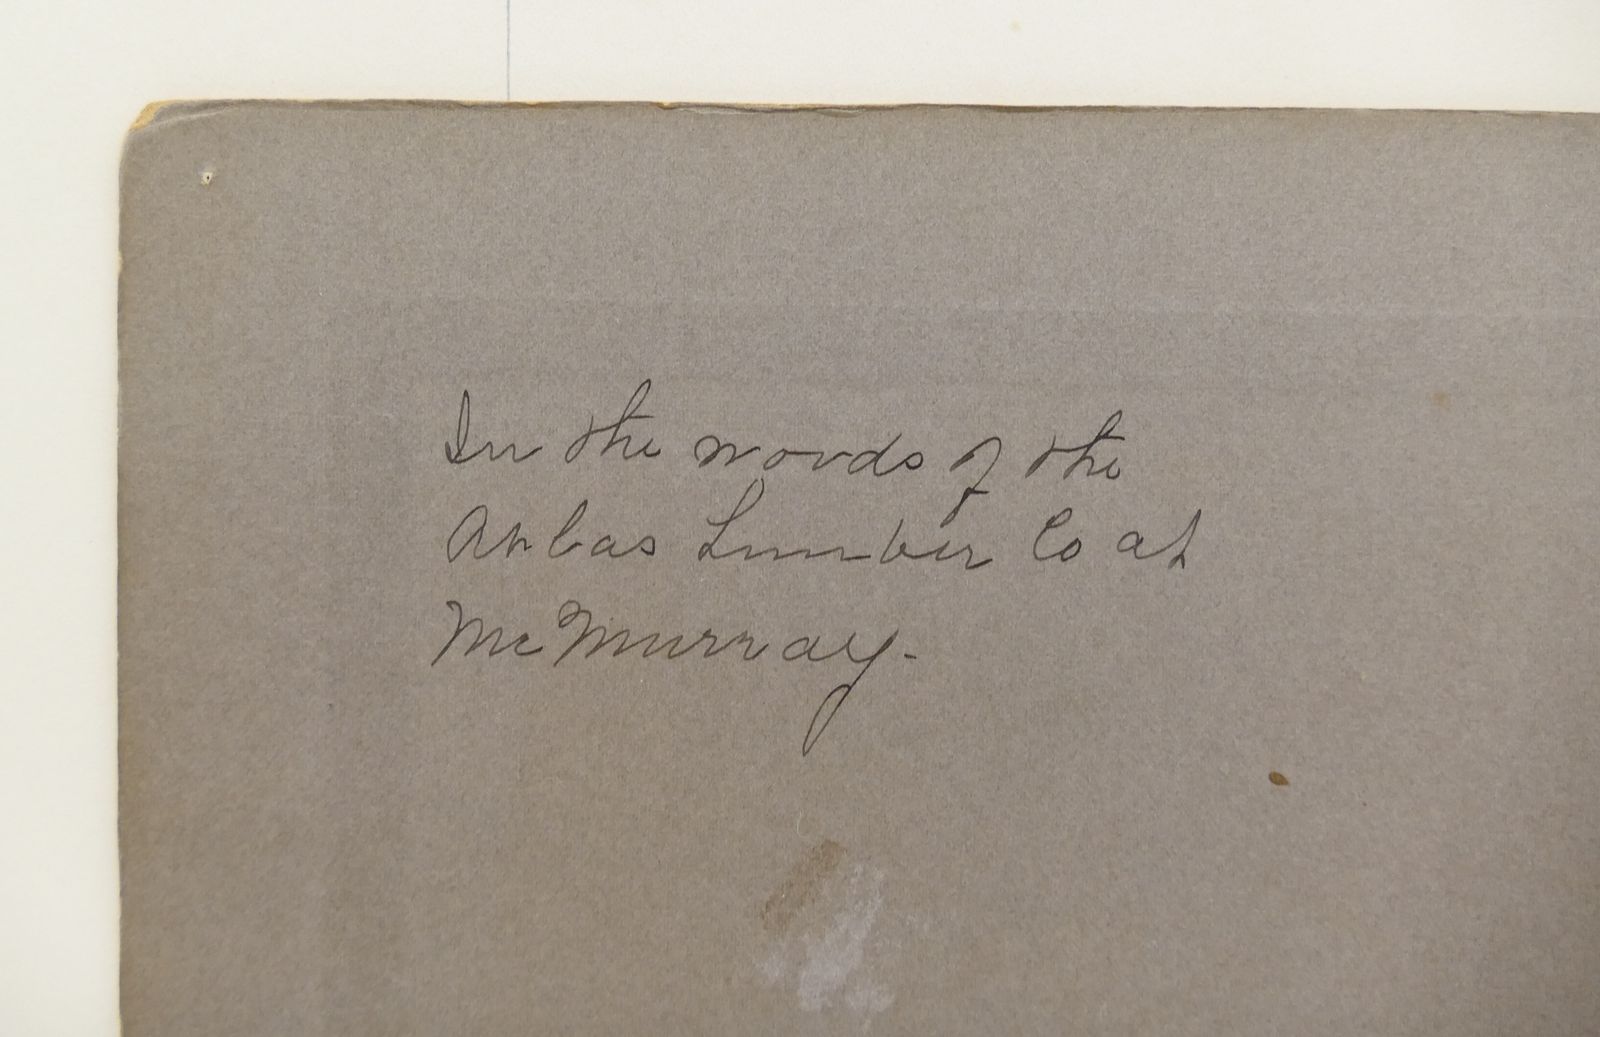 In the woods of the
Atlas Lumber Co at
McMurray.